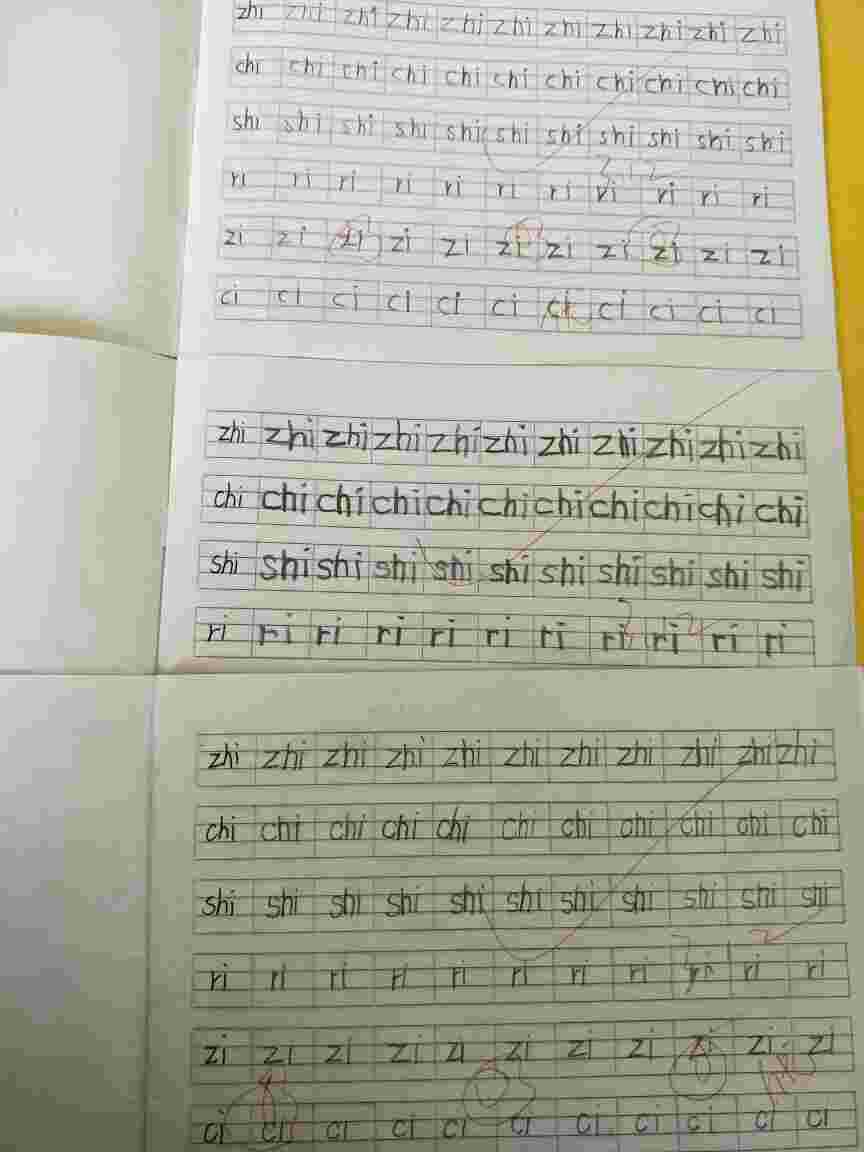 zhi zhi zhi zhi zhi zhi zhi zhi zhi zhi zhi
chi chi chi chi chi chi chi chi chi chi chi
shi shi shi shi shi shi shi shi shi shi shi
ri ri ri ri ri ri ri ri ri ri ri
zi zi zi zi zi zi zi zi zi zi zi
ci ci ci ci ci ci ci ci ci ci ci
zhi zhi zhi zhi zhi zhi zhi zhi zhi zhi zhi
chi chi chi chi chi chi chi chi chi chi chi
shi shi shi shi shi shi shi shi shi shi shi
ri ri ri ri ri ri ri ri ri ri ri
zhi zhi zhi zhi zhi zhi zhi zhi zhi zhi zhi
chi chi chi chi chi chi chi chi chi chi chi
shi shi shi shi shi shi shi shi shi shi shi
ri ri ri ri ri ri ri ri ri ri ri
zi zi zi zi zi zi zi zi zi zi zi
ci ci ci ci ci ci ci ci ci ci ci